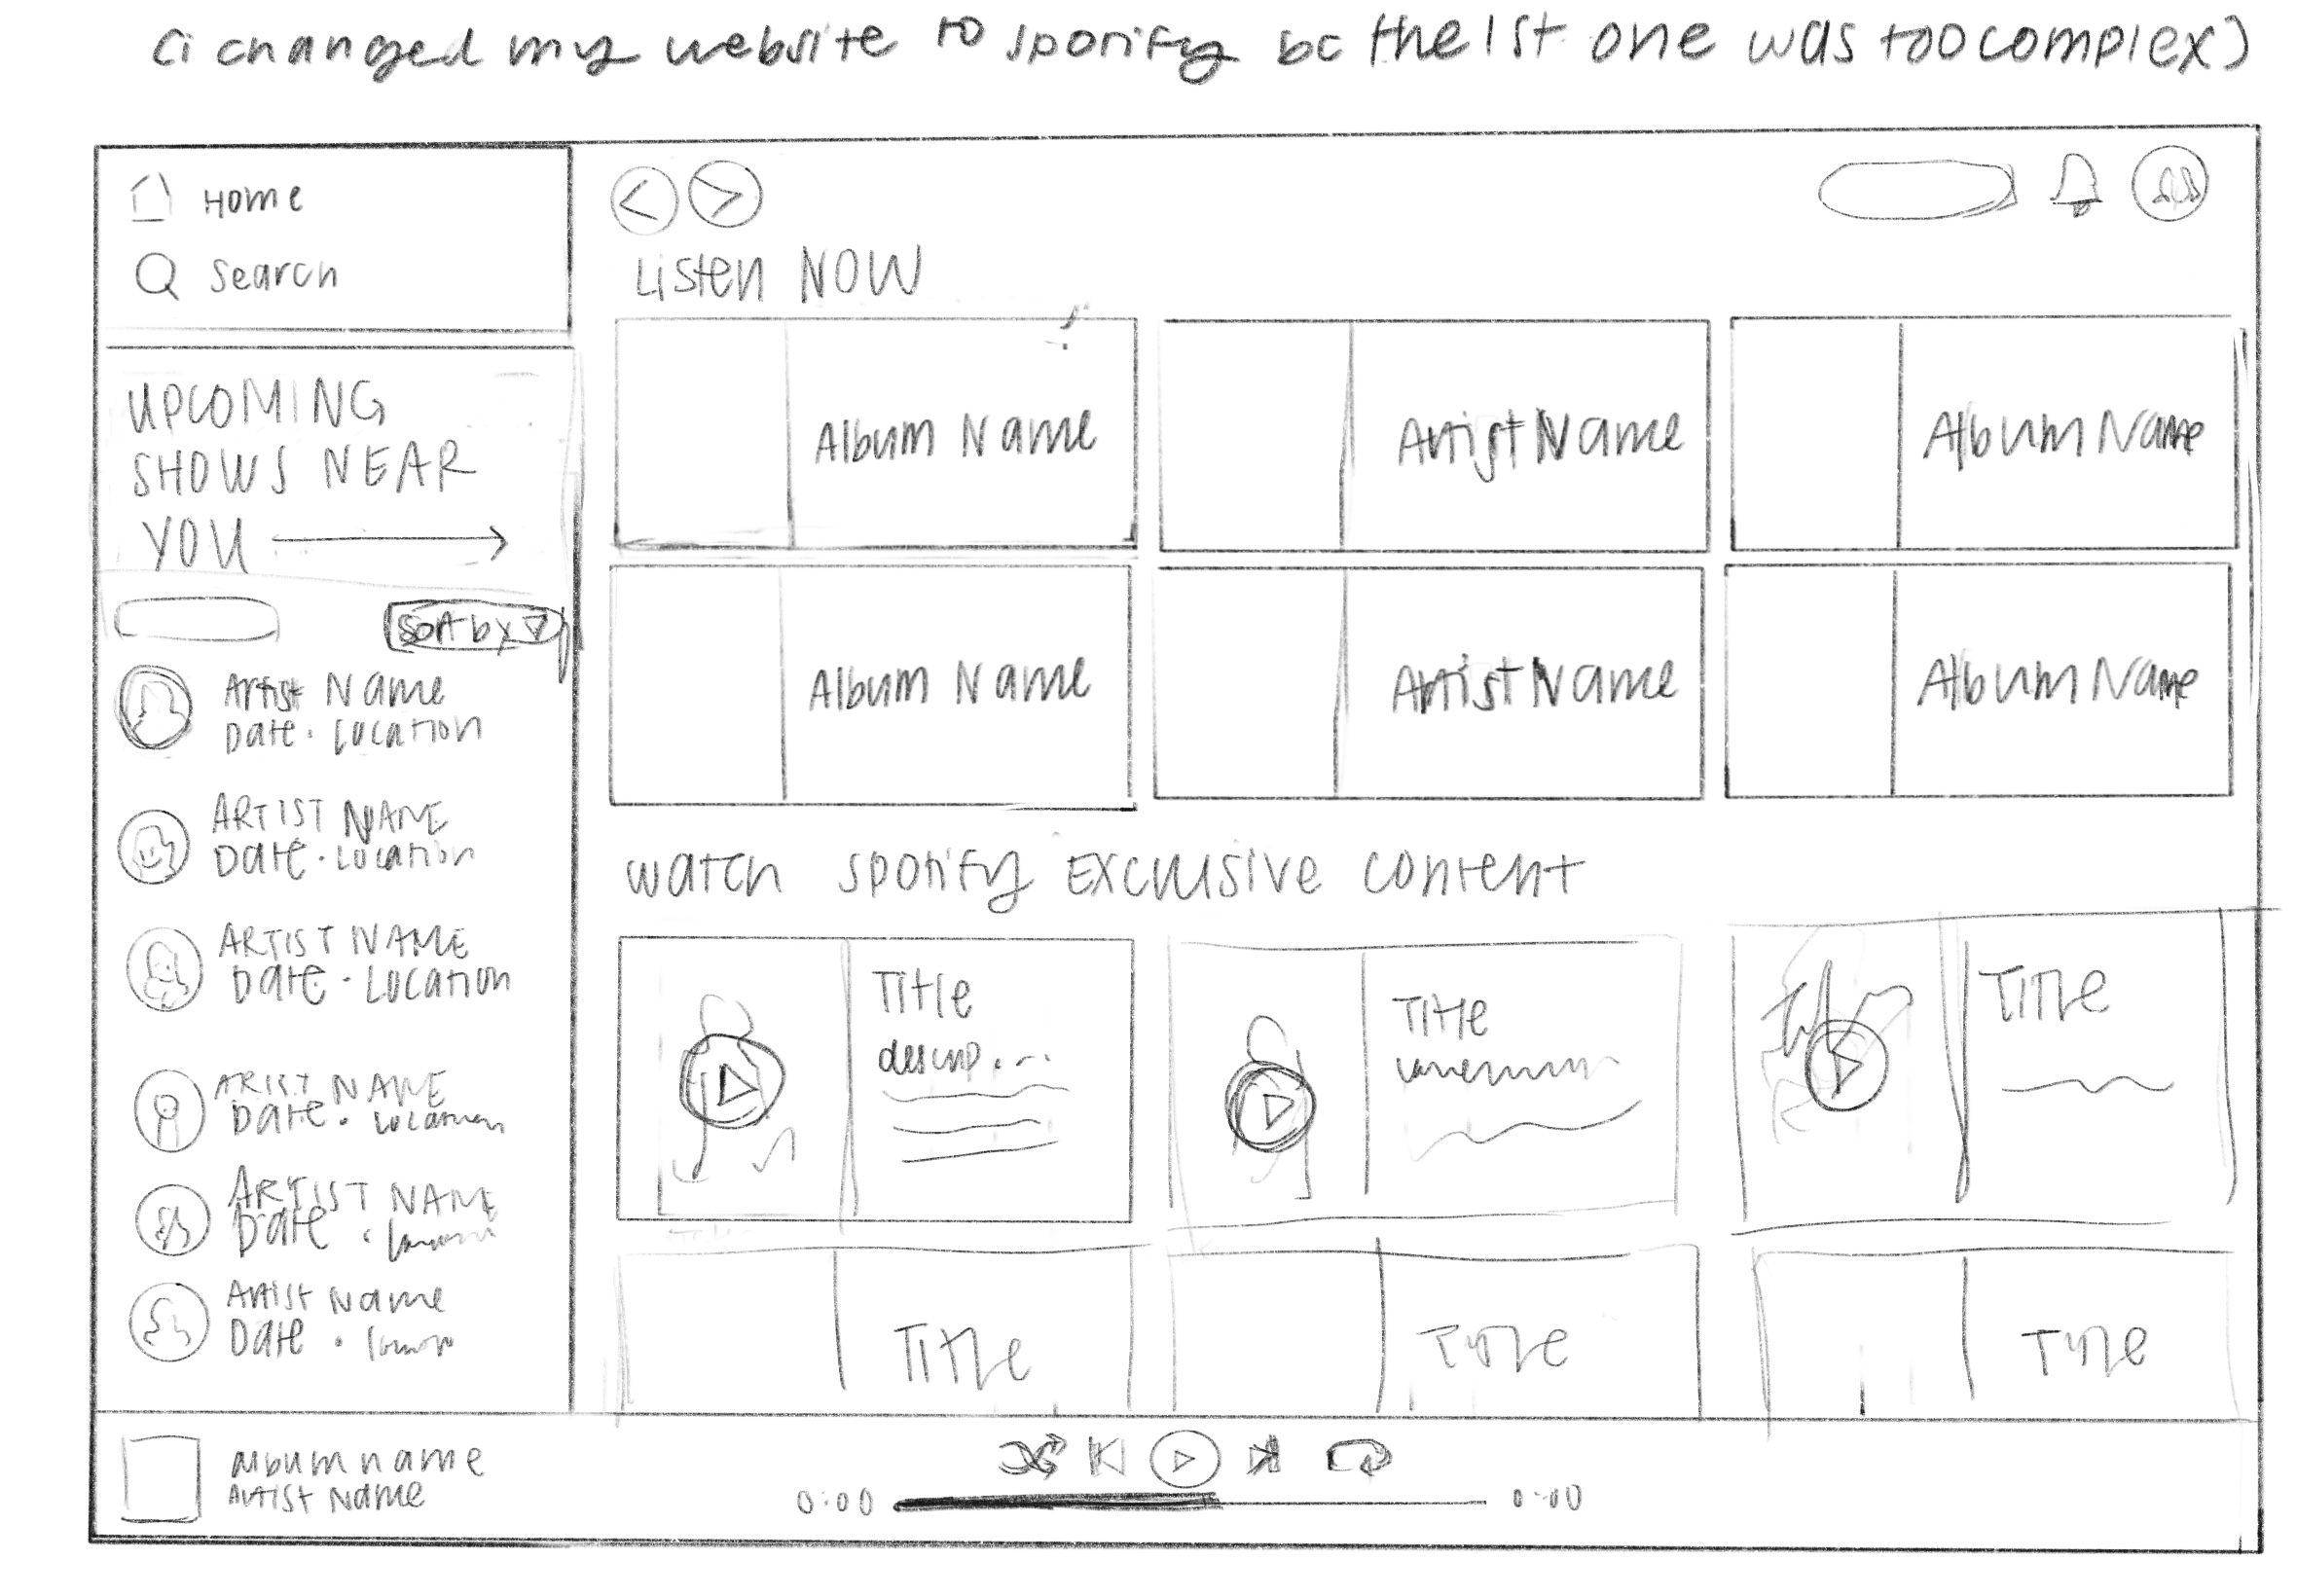 (i changed my website to spotify bc the 1st one was too complex)
Home
Search
UPCOMING
SHOWS NEAR
YOU
Sort by
Artist Name
Date · Location
ARTIST NAME
Date · Location
ARTIST NAME
Date · Location
ARIST NAME
Date · Location
ARTIST NAME
Date ·
Artist Name
Date ·
Listen NOW
Album Name
Artist Name
Album Name
Album Name
Artist Name
Album Name
watch spotify exclusive content
Title
descrip...
Title
Title
Title
Title
Title
album name
Artist Name
0:00
0:00